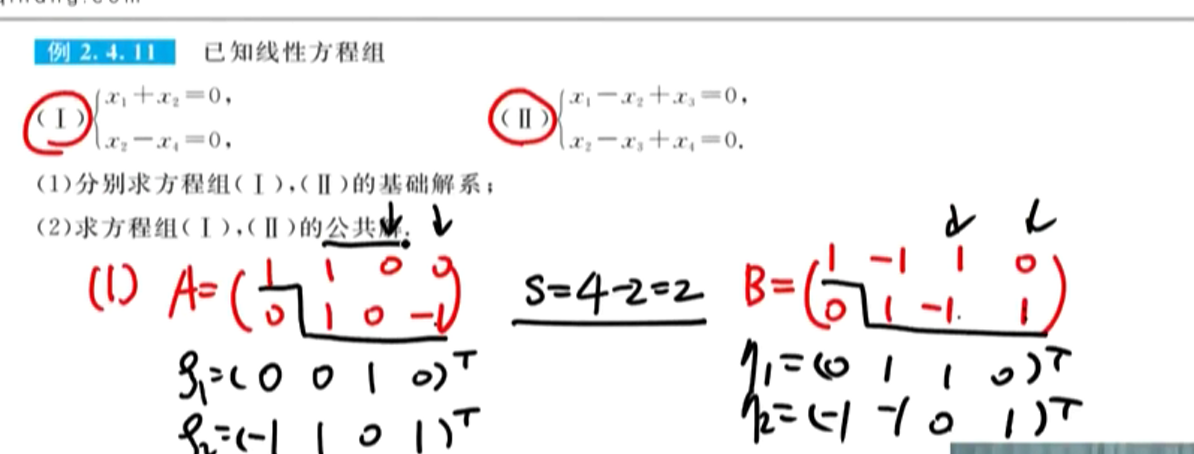 例 2.4.11 已知线性方程组
(Ⅰ) { x₁+x₂=0, (Ⅱ) { x₁-x₂+x₃=0,
x₂-x₄=0, x₂-x₃+x₄=0.
(1)分别求方程组(Ⅰ),(Ⅱ)的基础解系;
(2)求方程组(Ⅰ),(Ⅱ)的公共解.
(1) A=( 1 1 0 0 S=4-2=2 B=( 1 -1 1 0
0 1 0 -1 ) 0 1 -1 1 )
ξ₁=(0 0 1 0)ᵀ η₁=(0 1 1 0)ᵀ
ξ₂=(-1 1 0 1)ᵀ η₂=(-1 -1 0 1)ᵀ